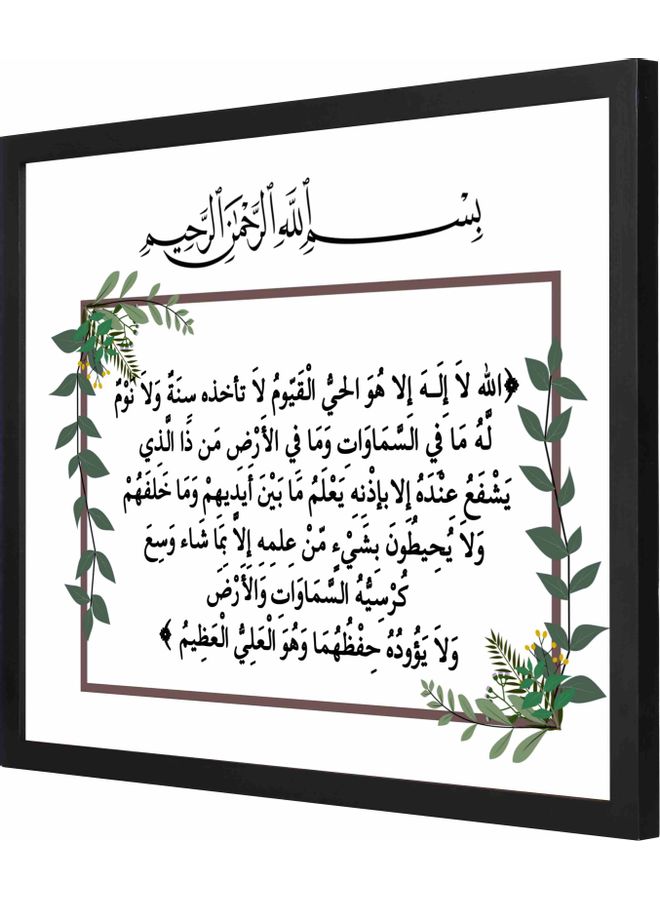 بِسْمِ ٱللَّهِ ٱلرَّحْمَٰنِ ٱلرَّحِيمِ
﴿الله لاَ إِلَـهَ إلا هُوَ الحيُّ الْقَيُّومُ لاَ تأخذه سِنَةٌ وَلاَ نَوْمٌ
لَّهُ مَا فِي السَّمَاوَاتِ وَمَا فِي الأَرْضِ مَن ذَا الَّذِي
يَشْفَعُ عِنْدَهُ إلا بإذْنِهِ يَعْلَمُ مَا بَيْنَ أَيدِيهِمْ وَمَا خَلفَهُمْ
وَلاَ يُحِيطُونَ بِشَيْءٍ مِّنْ عِلمِهِ إلاَّ بِمَا شَاء وَسِعَ
كُرْسِيُّهُ السَّمَاوَاتِ وَالأَرْضَ
وَلاَ يَؤُودُهُ حِفْظُهُمَا وَهُوَ الْعَلِيُّ الْعَظِيمُ ﴾